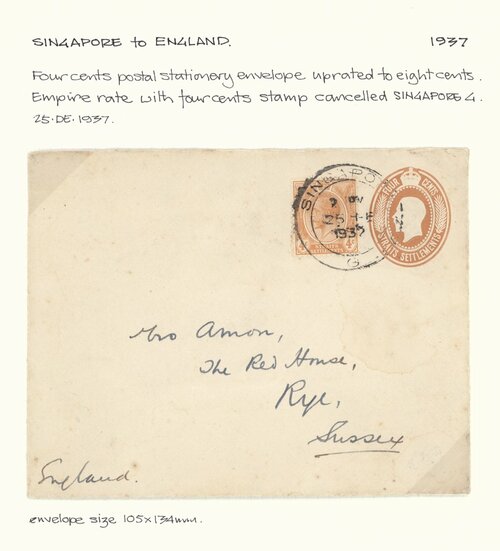 SINGAPORE to ENGLAND. 1937
Four cents postal stationery envelope uprated to eight cents.
Empire rate with four cents stamp cancelled SINGAPORE G.
25.DE.1937.
SINGAPO
25 DE
1937
G
FOUR CENTS
STRAITS SETTLEMENTS
Mrs Amon,
The Red House,
Rye,
Sussex
England.
envelope size 105x134mm.